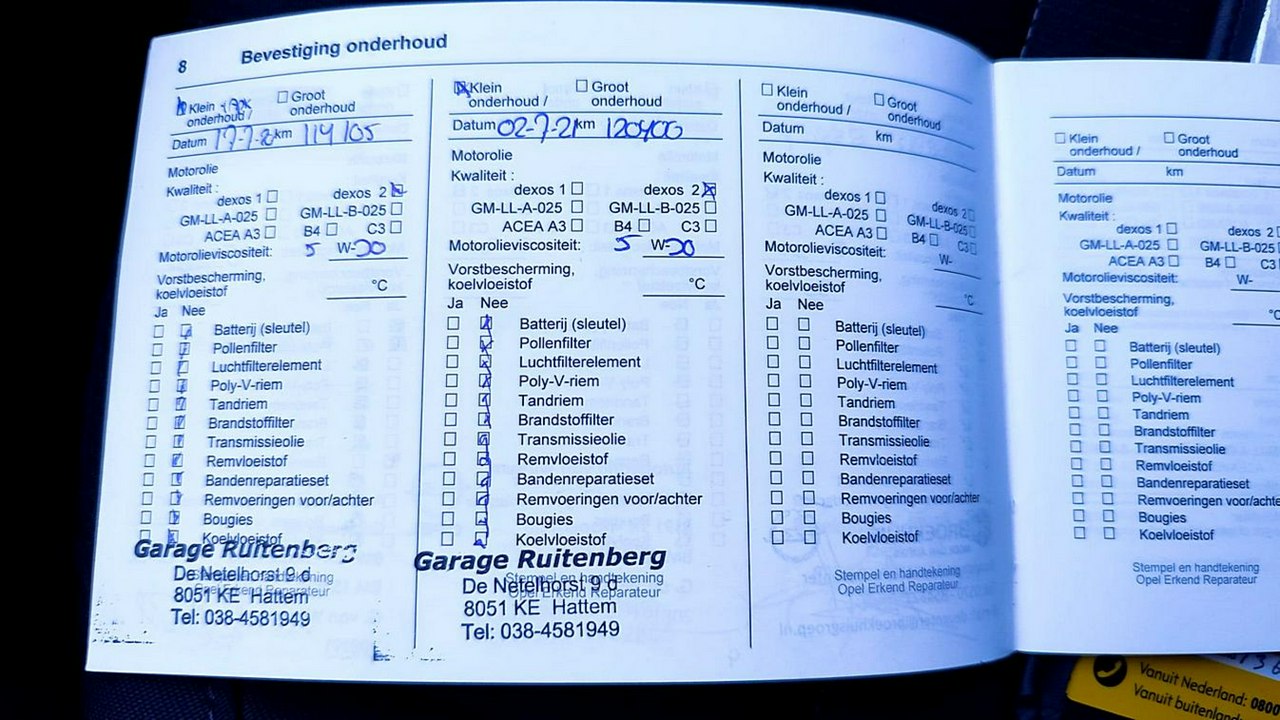 8 Bevestiging onderhoud
Klein onderhoud /
Groot onderhoud
Datum 17-7-20 km 114105
Motorolie
Kwaliteit :
dexos 1 dexos 2
GM-LL-A-025 GM-LL-B-025
ACEA A3 B4 C3
Motorolieviscositeit: 5 W-30
Vorstbescherming,
koelvloeistof °C
Ja Nee
Batterij (sleutel)
Pollenfilter
Luchtfilterelement
Poly-V-riem
Tandriem
Brandstoffilter
Transmissieolie
Remvloeistof
Bandenreparatieset
Remvoeringen voor/achter
Bougies
Koelvloeistof
Garage Ruitenberg
De Netelhorst 9 d
8051 KE Hattem
Tel: 038-4581949
Stempel en handtekening
Opel Erkend Reparateur
Klein onderhoud /
Groot onderhoud
Datum 02-7-21 km 120400
Motorolie
Kwaliteit :
dexos 1 dexos 2
GM-LL-A-025 GM-LL-B-025
ACEA A3 B4 C3
Motorolieviscositeit: 5 W-30
Vorstbescherming,
koelvloeistof °C
Ja Nee
Batterij (sleutel)
Pollenfilter
Luchtfilterelement
Poly-V-riem
Tandriem
Brandstoffilter
Transmissieolie
Remvloeistof
Bandenreparatieset
Remvoeringen voor/achter
Bougies
Koelvloeistof
Garage Ruitenberg
De Netelhorst 9 d
8051 KE Hattem
Tel: 038-4581949
Stempel en handtekening
Opel Erkend Reparateur
Klein onderhoud /
Groot onderhoud
Datum km
Motorolie
Kwaliteit :
dexos 1 dexos 2
GM-LL-A-025 GM-LL-B-025
ACEA A3 B4 C3
Motorolieviscositeit: W-
Vorstbescherming,
koelvloeistof °C
Ja Nee
Batterij (sleutel)
Pollenfilter
Luchtfilterelement
Poly-V-riem
Tandriem
Brandstoffilter
Transmissieolie
Remvloeistof
Bandenreparatieset
Remvoeringen voor/achter
Bougies
Koelvloeistof
Stempel en handtekening
Opel Erkend Reparateur
Klein onderhoud /
Groot onderhoud
Datum km
Motorolie
Kwaliteit :
dexos 1 dexos 2
GM-LL-A-025 GM-LL-B-025
ACEA A3 B4 C3
Motorolieviscositeit: W-
Vorstbescherming,
koelvloeistof
Ja Nee
Batterij (sleutel)
Pollenfilter
Luchtfilterelement
Poly-V-riem
Tandriem
Brandstoffilter
Transmissieolie
Remvloeistof
Bandenreparatieset
Remvoeringen voor/achter
Bougies
Koelvloeistof
Stempel en handtekening
Opel Erkend Reparateur
Vanuit Nederland: 0800
Vanuit buitenland